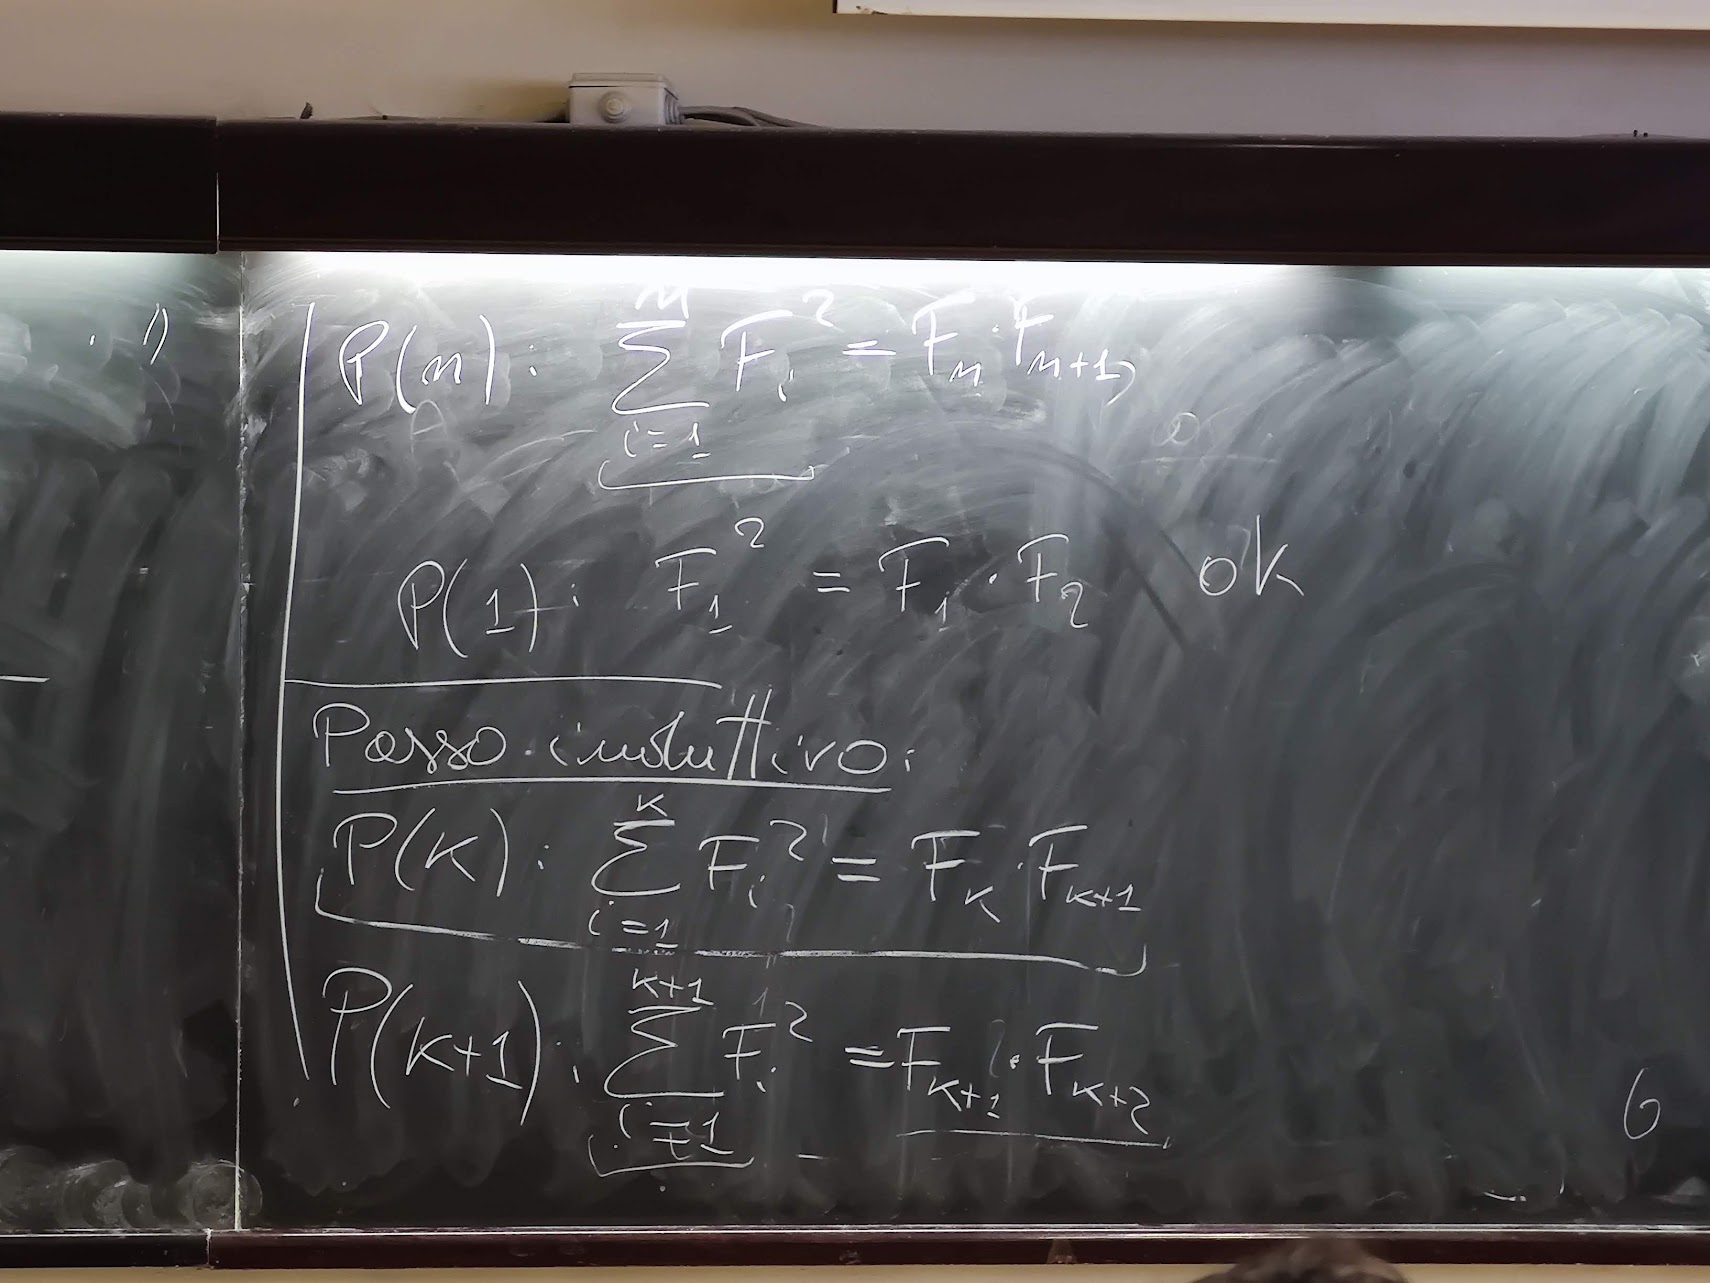 P(n): ∑_{i=1}^{n} F_i^2 = F_n · F_{n+1},
P(1): F_1^2 = F_1 · F_2 ok
Passo induttivo:
P(k): ∑_{i=1}^{k} F_i^2 = F_k · F_{k+1}
P(k+1): ∑_{i=1}^{k+1} F_i^2 = F_{k+1} · F_{k+2}
6